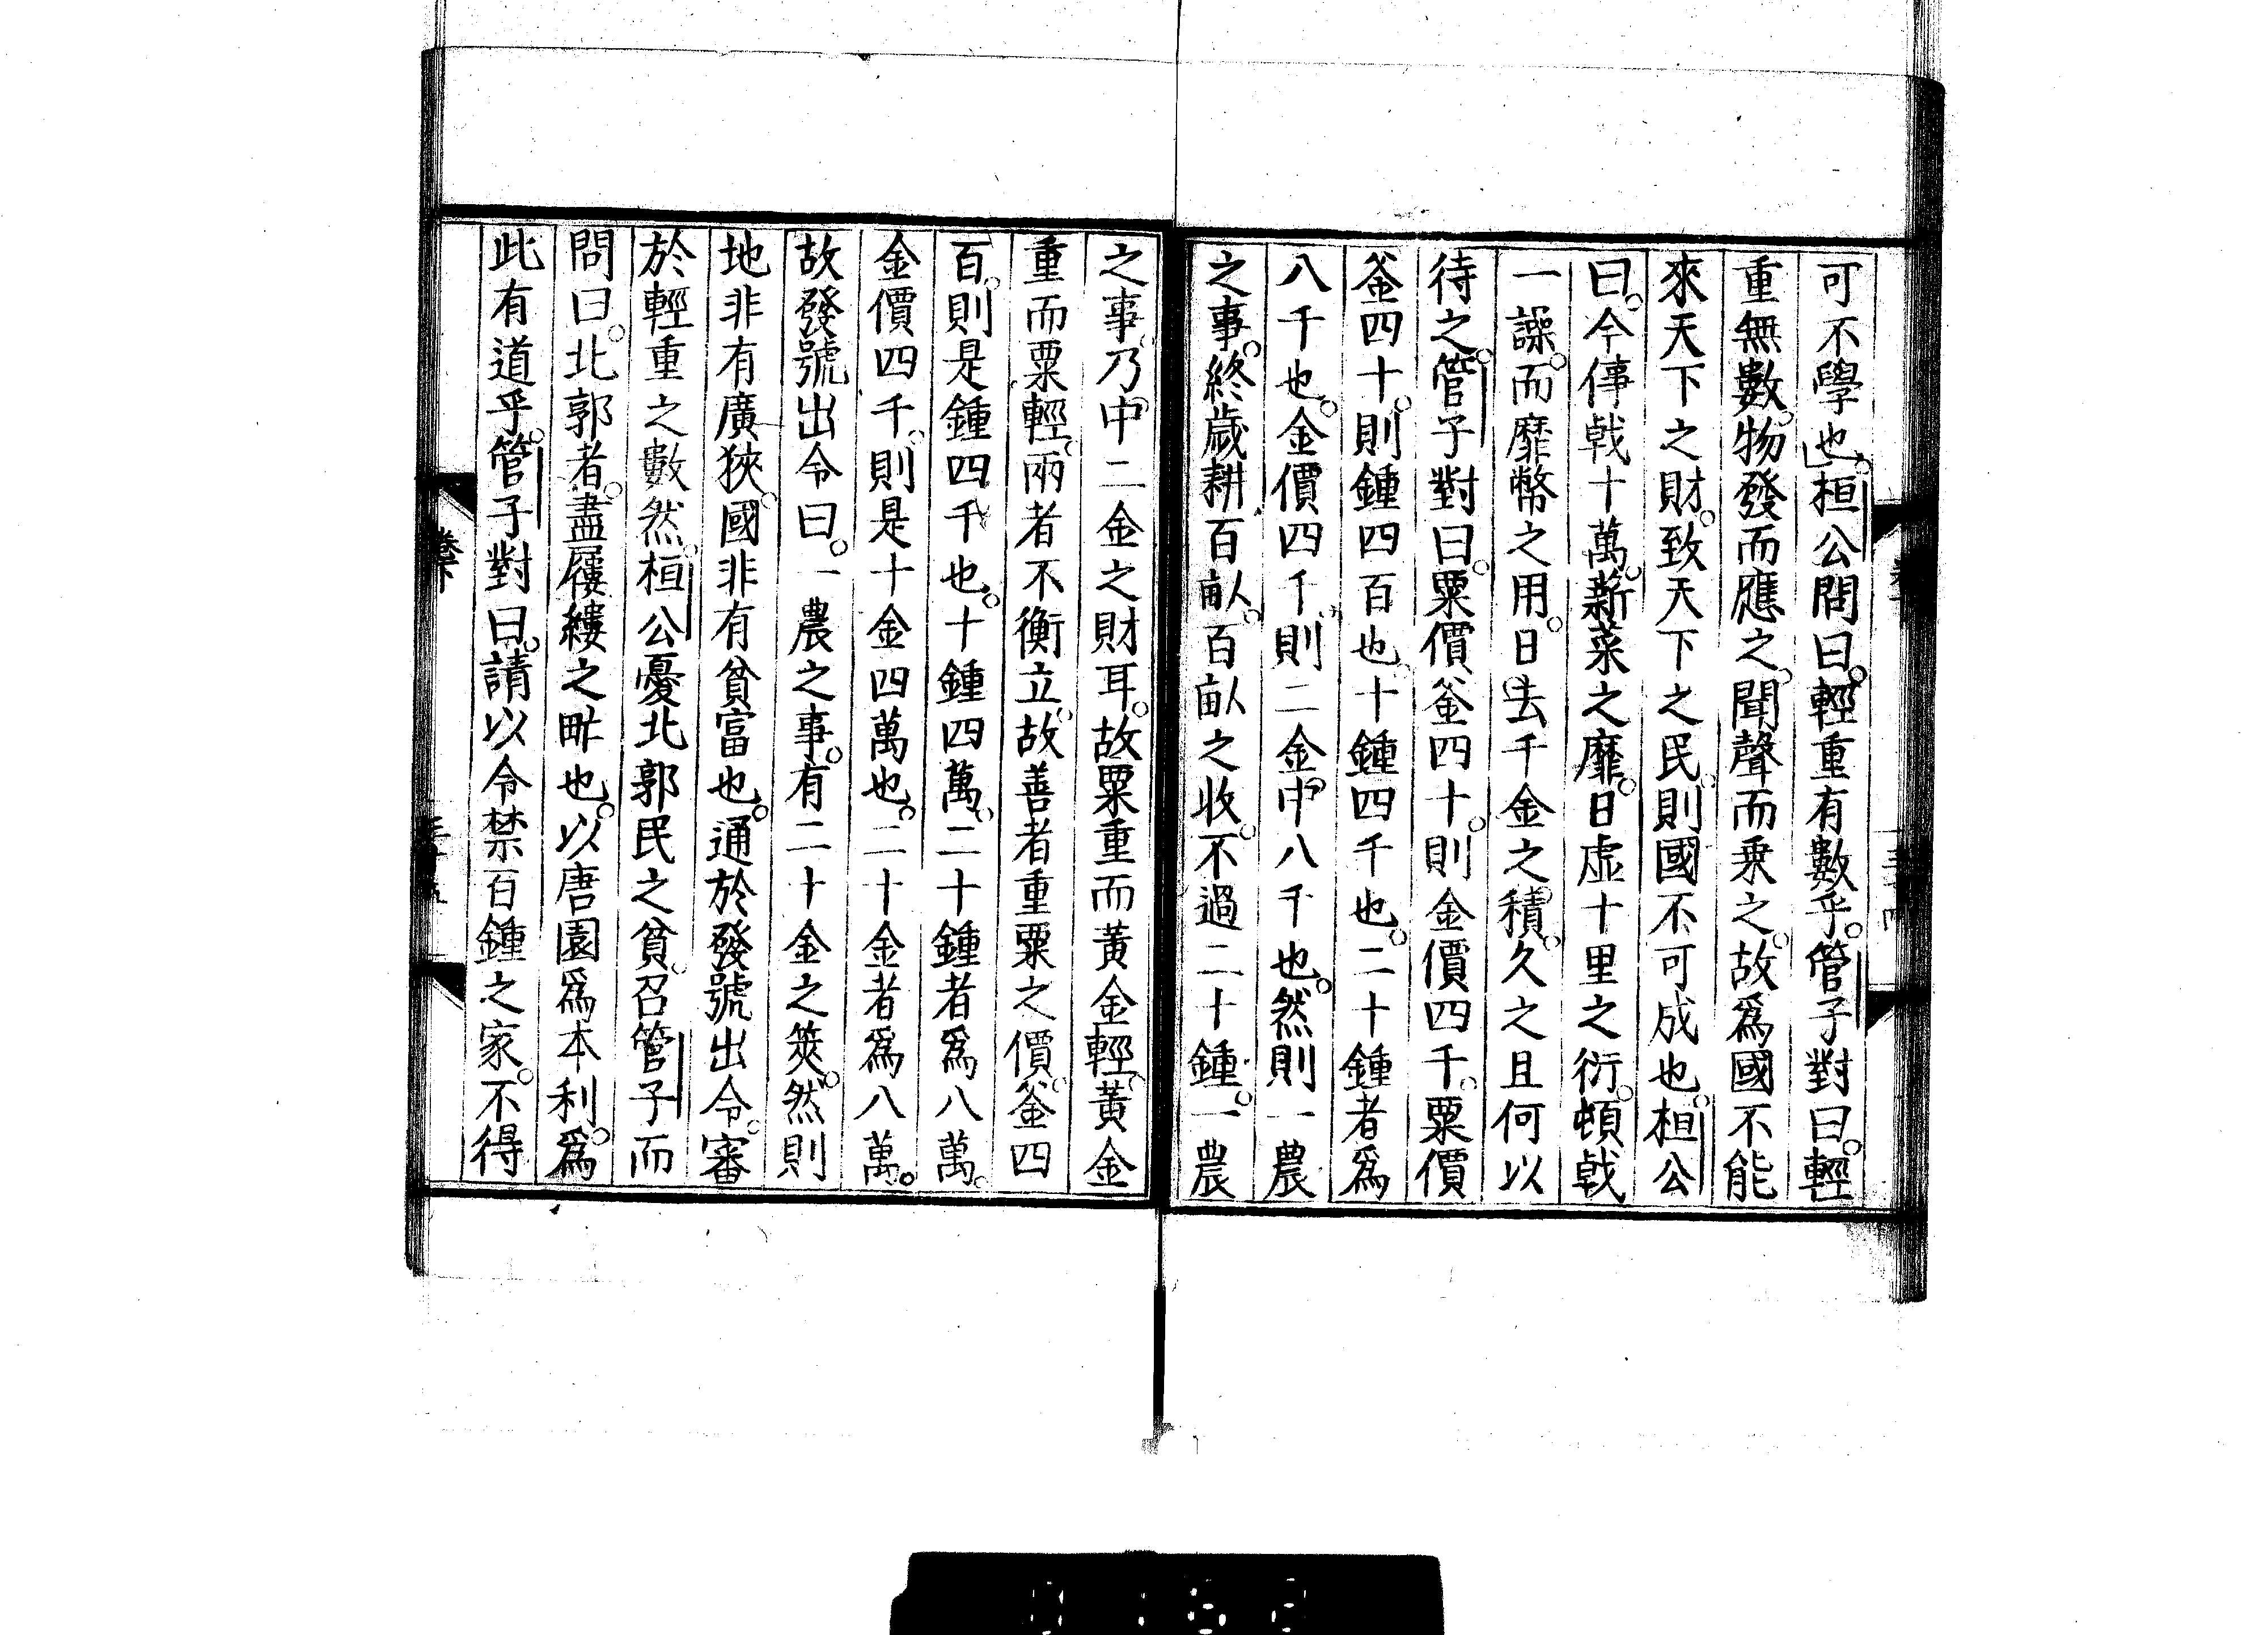 可不學也。桓公問曰。輕重有數乎。管子對曰。輕
重無數。物發而應之。聞聲而乘之。故爲國不能
來天下之財。致天下之民。則國不可成也。桓公
曰。今倳戟十萬。薪菜之靡。日虛十里之衍。頓戟
一譟。而靡幣之用。日去千金之積。久之且何以
待之。管子對曰。粟價釜四十。則金價四千。粟價
釜四十。則鍾四百也。十鍾四千也。二十鍾者爲
八千也。金價四千。則二金中八千也。然則一農
之事。終歲耕百畝。百畝之收。不過二十鍾。一農
之事。乃中二金之財耳。故粟重而黃金輕。黃金
重而粟輕。兩者不衡立。故善者重粟之價。釜四
百。則是鍾四千也。十鍾四萬。二十鍾者爲八萬。
金價四千。則是十金四萬也。二十金者爲八萬。
故發號出令曰。一農之事。有二十金之筴。然則
地非有廣狹。國非有貧富也。通於發號出令。審
於輕重之數然。桓公憂北郭民之貧。召管子而
問曰。北郭者。盡屨縷之甿也。以唐園爲本利。爲
此有道乎。管子對曰。請以令禁百鍾之家。不得